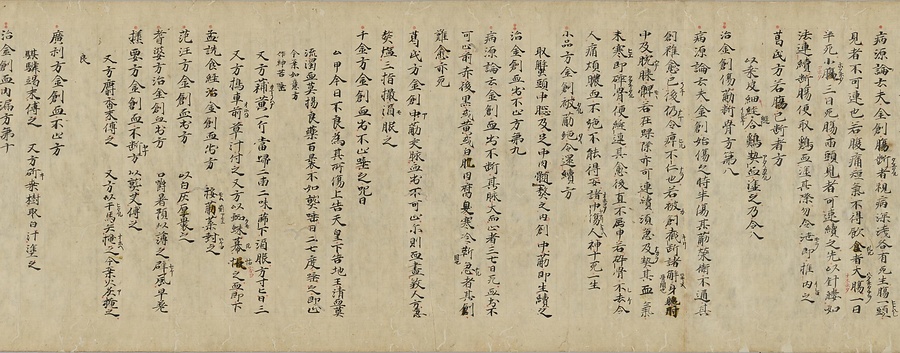 病源論云夫金創腸斷者視病深淺各有死生腸一頭
見者不可連也若腹痛短氣不得飲食者大腸一日
半死小腸三日死腸兩頭見者可連續之先以針縷如
法連續斷腸便取鷄血塗其際勿令泄即推內之
葛氏方若腸已斷者方
以桑皮細縫合鷄熱血塗之乃令入
治金創傷筋斷骨方第八
病源論云夫金創始傷之時半傷其筋榮衛不通其
創雖愈已後仍令痹不仁若被創截斷諸解身肘
中及腕膝髀若在踝際亦可連續須急及熱其血氣
未寒即碎骨便縫連其愈後直不屈申若碎骨不去令
人痛煩膿血不絕不能得安諸中傷人神十死一生
小品方金創被筋絕令還續方
取蟹頭中腦及足中肉髓熬之內創中筋即生續之
治金創血出不止方第九
病源論云金創血出不斷其脉大而止者三七日死血出不
可止前赤後黑或黃或白肌肉腐臭寒冷鞕急者其創
難愈亦死
葛氏方金創中筋交脉血出不可止尒則血盡殺人方急
熬鹽三指撮酒服之
千金方金創血出不止禁之咒曰
厶甲今日不良為其所傷上告天皇下告地王清血莫
流濁血莫揚良藥百裹不如熟唾日二七度唾之即止
今案如急方
作珍苦鹽
又方蒲黃一斤當歸二兩二味篩下酒服方寸匕日三
又方搗車前草汁付之又方以蜘蛛幕撮之血即下
孟詵食經治金創血出方 挼葡葉封之
范汪方金創血出方 以白灰厚裹之
耆婆方治金創血出方 口嚼薯預以薄之辟風早差
極要方金創血不斷方 以熟艾傅之
又方麝香末傅之 又方以干馬矢掩之今案火灰掩之
良
廣利方金創血不止方
騏驎竭末傅之 又方斫桑樹取白汁塗之
治金創血內漏方第十